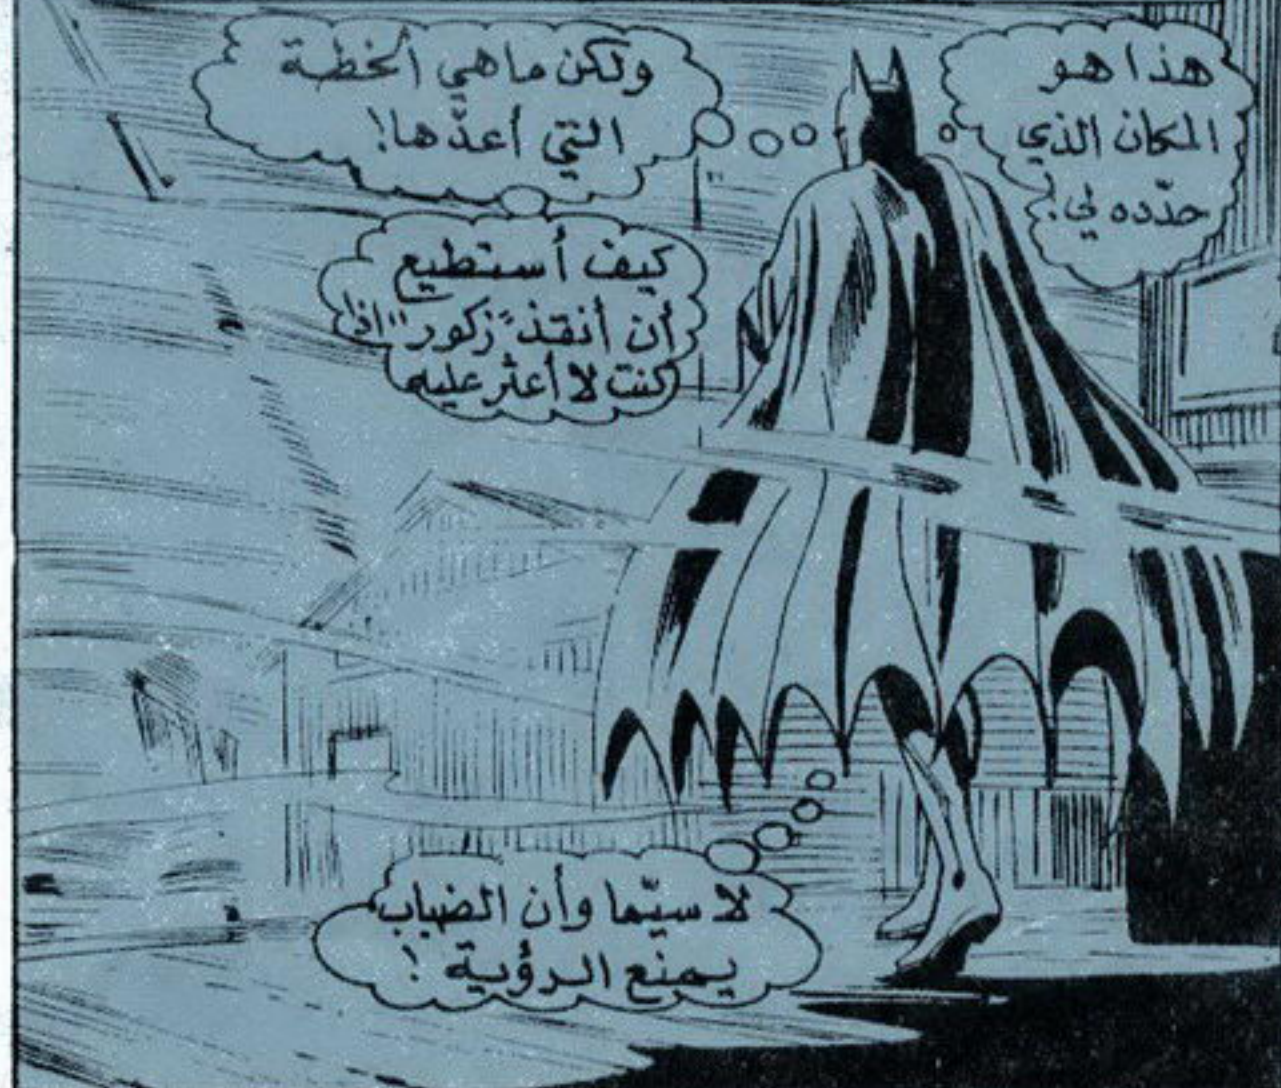 هذا هو
المكان الذي
حدّده لي!
ولكن ما هي الخطة
التي أعدَّها!
كيف أستطيع
أن أنقذ "زكور" اذا
كنت لا أعثر عليه
لا سيّما وأن الضباب
يمنع الرؤية !